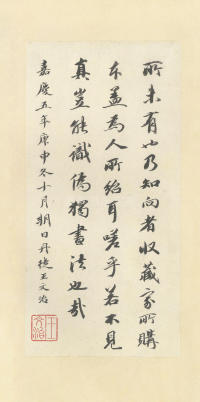 所未有也乃知向者收藏家所購
本盖為人所紿耳嗟乎若不見
真豈能識偽獨書法也哉
嘉慶五年庚申冬十月朔日丹徒王文治
王文治